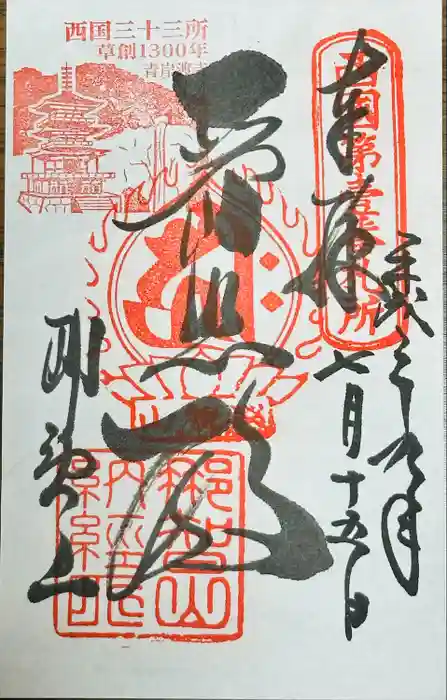 西国三十三所
草創1300年
青岸渡寺
西国第壹番札所
奉拝
平成三十年
七月十五日
普照殿
那智山
那智山